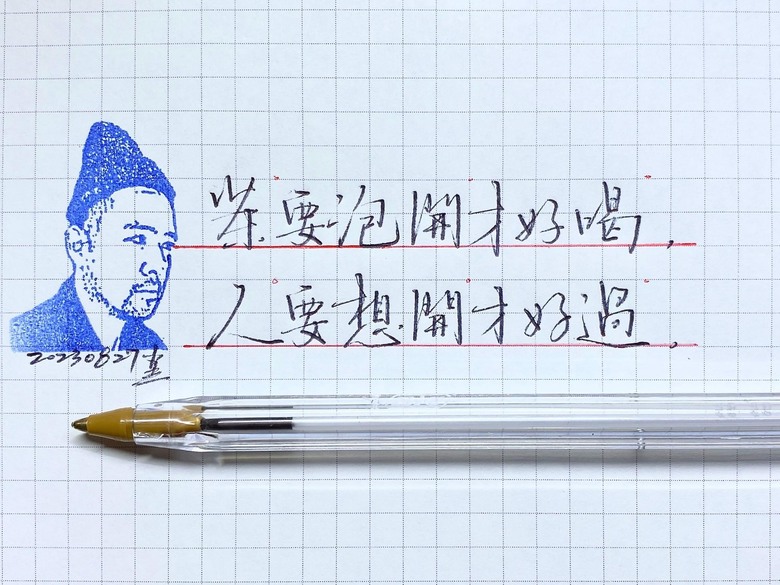 茶要泡開才好喝，
人要想開才好過，
20230827